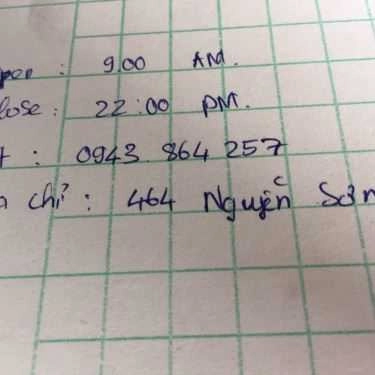 pen : 9.00 AM.
lose : 22:00 PM.
t : 0943 864 257
a chỉ : 464 Nguyễn Sơn